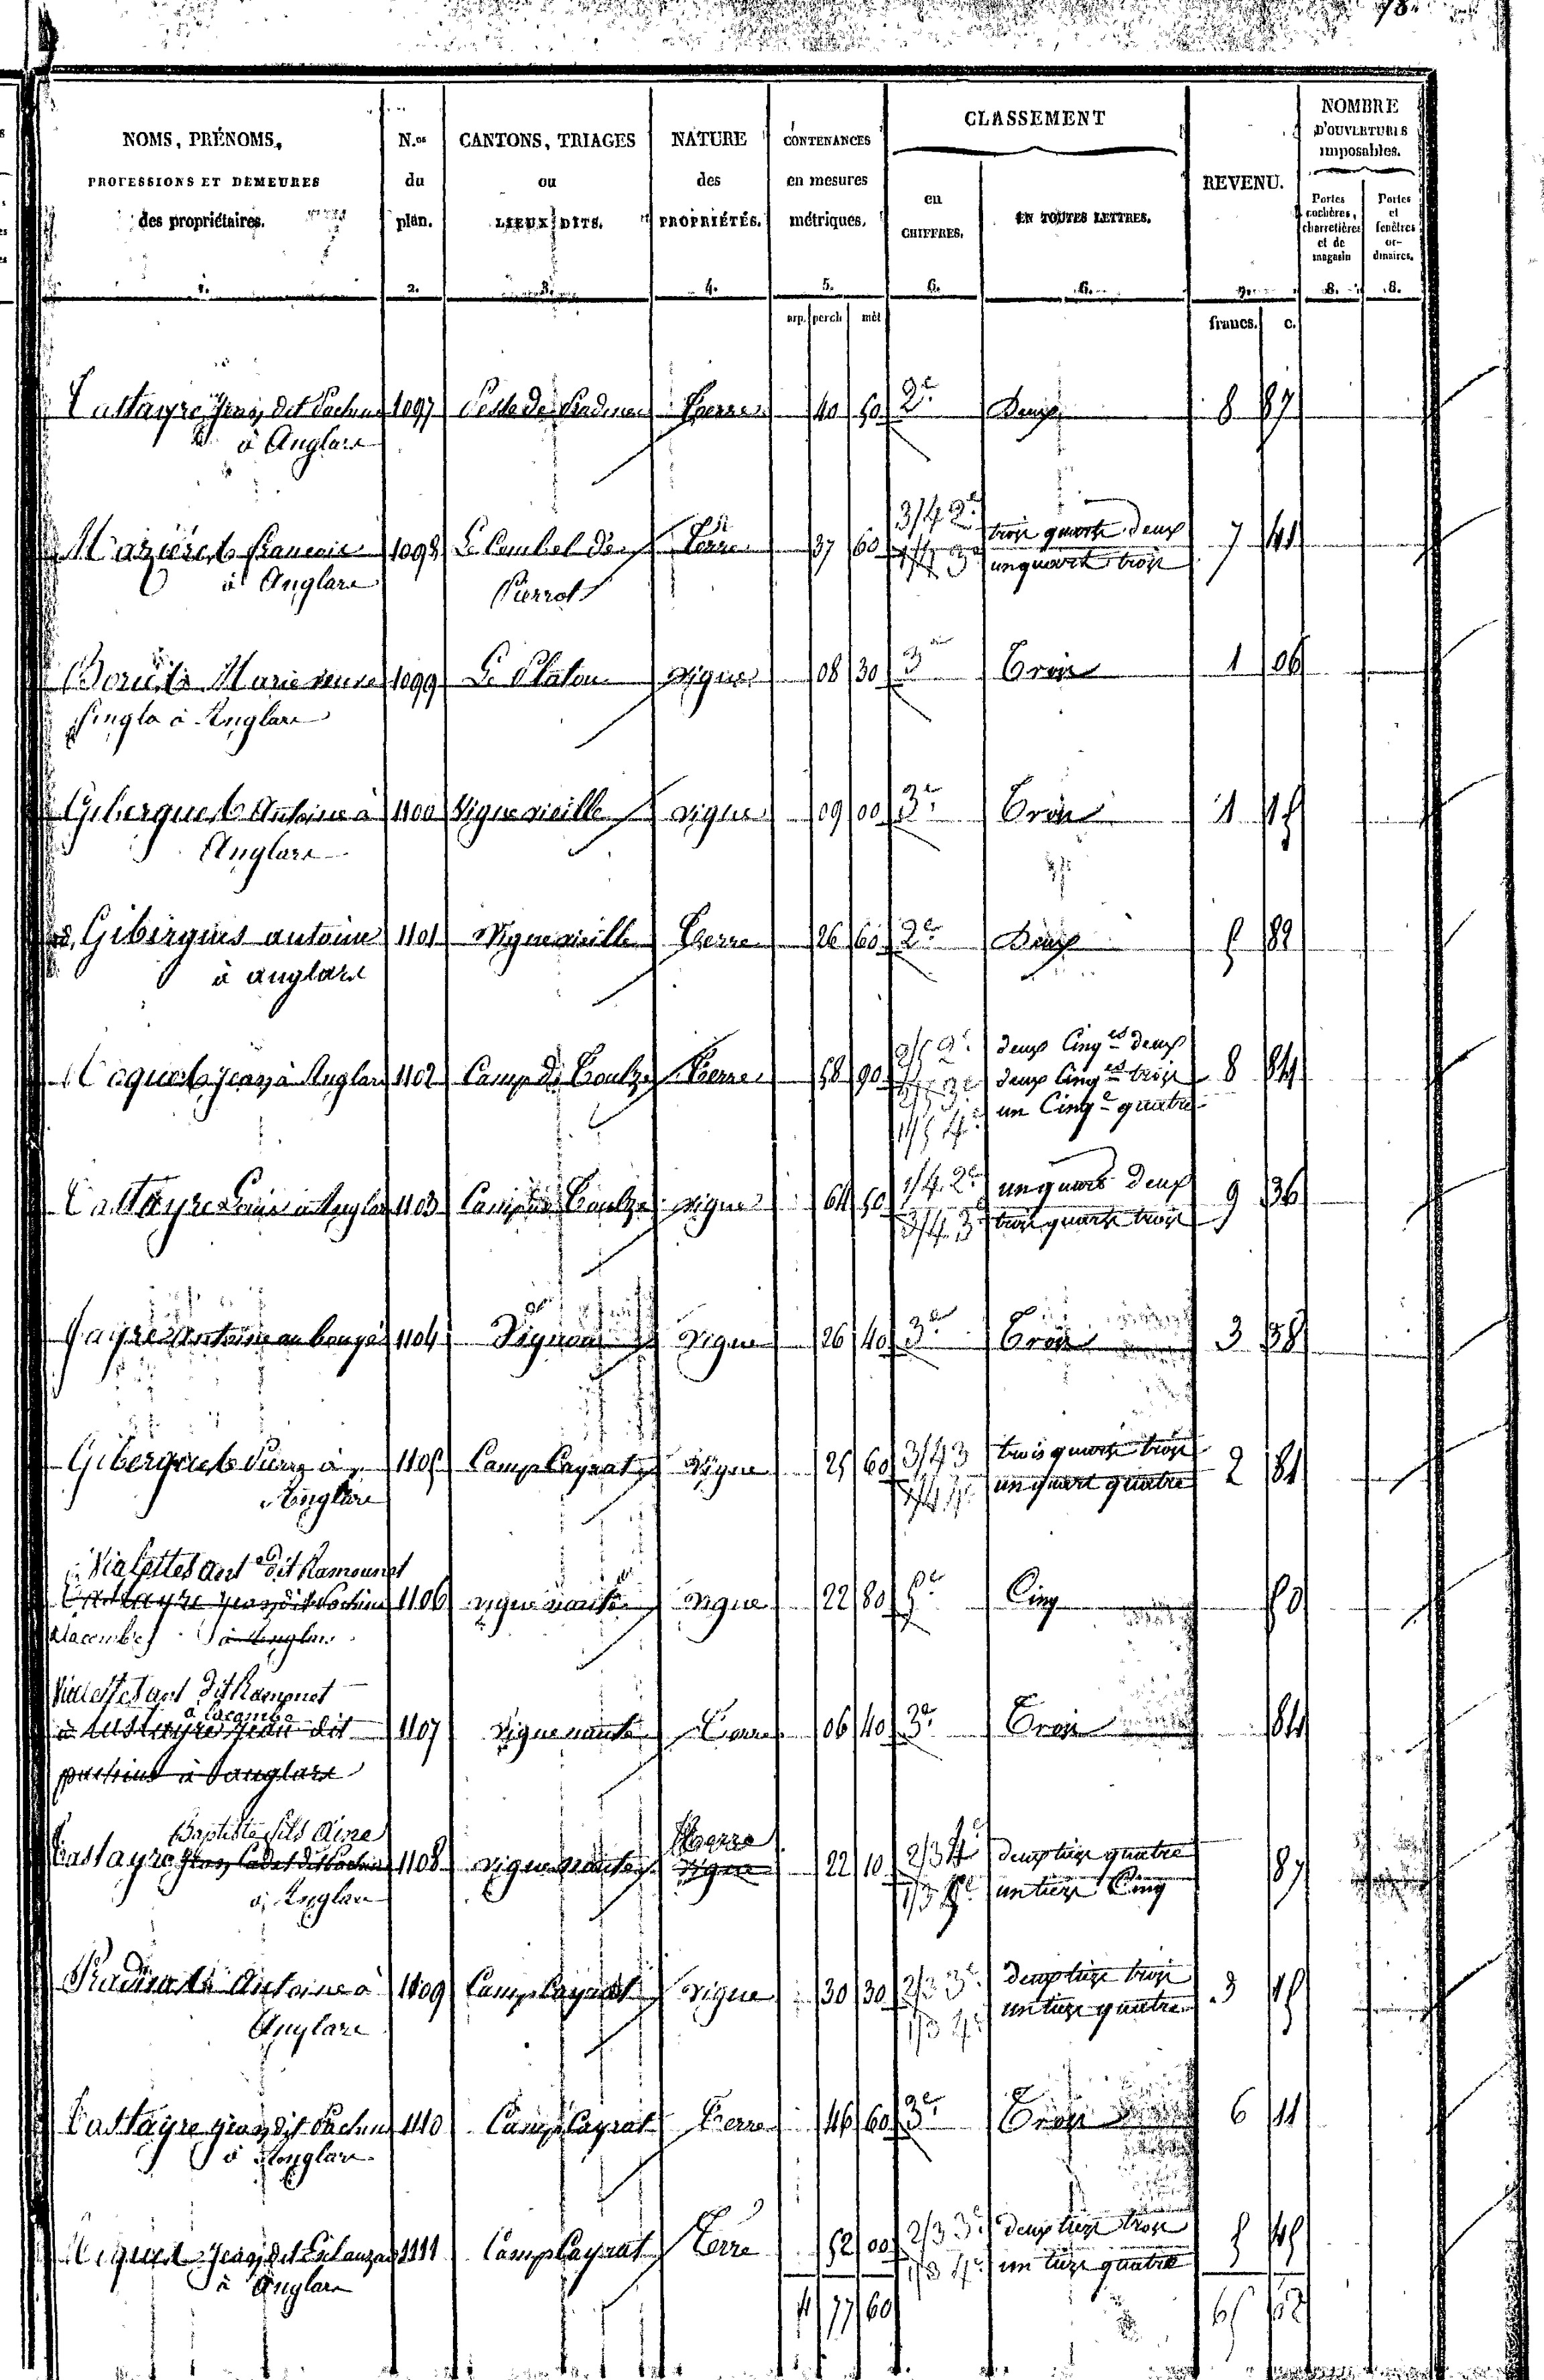 78.
NOMS, PRÉNOMS,
PROFESSIONS ET DEMEURES
des propriétaires.
1.
N.os
du
plan.
2.
CANTONS, TRIAGES
ou
LIEUX DITS.
3.
NATURE
des
PROPRIÉTÉS.
4.
CONTENANCES
en mesures
métriques.
5.
arp. perch mèt
CLASSEMENT
en
CHIFFRES.
6.
EN TOUTES LETTRES.
6.
REVENU.
7.
francs. c.
NOMBRE
D'OUVERTURES
imposables.
Portes
cochères,
charretières
et de
magasin
8.
Portes
et
fenêtres
or-
dinaires.
8.
Castayre Jean dit Pachin 1097 Terre 40 50 2e Deux 8 87
à Anglars
François 1098 Le Combel de Terre 37 60 3/4 2e trois quarts deux 7 41
à Anglars Pierrot 1/4 3e un quart trois
Marie veuve 1099 Le Platou vigne 08 30 3e Trois 1 06
à Anglars
Gibergues Antoine à 1100 Vigne vieille vigne 09 00 3e Trois 1 15
Anglars
Gibergues antoine 1101 Vigne vieille Terre 26 60 2e Deux 5 82
à anglars
Jean à Anglars 1102 Camp de Terre 58 90 2/5 2e deux Cinqes deux 8 84
2/5 3e deux Cinqes trois
1/5 4e un Cinqe quatre
Castayre Louis à Anglars 1103 Camp de vigne 64 50 1/4 2e un quart deux 9 36
3/4 3e trois quarts trois
Antoine au 1104 Vignou Vigne 26 40 3e Trois 3 38
Gibergues Pierre à 1105 Camp Cayrat Vigne 25 60 3/4 3 trois quarts trois 2 81
Anglars 1/4 4e un quart quatre
Vialettes ant dit Ramounet
Castayre Jean dit Pachin 1106 vigne naute Vigne 22 80 5e Cinq 50
à lacombe à Anglars
Vialettes ant dit Ramounet
à lacombe
Castayre Jean dit 1107 vigne naute Terre 06 40 3e Trois 84
pachin à Anglars
Baptiste fils Ainé Terre
Castayre Jean Cadet dit Pachin 1108 vigne naute Vigne 22 10 2/3 4e deux tiers quatre 87
à Anglars 1/3 5e un tiers Cinq
Antoine à 1109 Camp Cayrat Vigne 30 30 2/3 3e deux tiers trois 3 15
Anglars 1/3 4e un tiers quatre
Castayre Jean dit Pachin 1110 Camp Cayrat Terre 46 60 3e Trois 6 11
à Anglars
Jean dit 1111 Camp Cayrat Terre 52 00 2/3 3e deux tiers trois 5 45
à Anglars 1/3 4e un tiers quatre
4 77 60 65